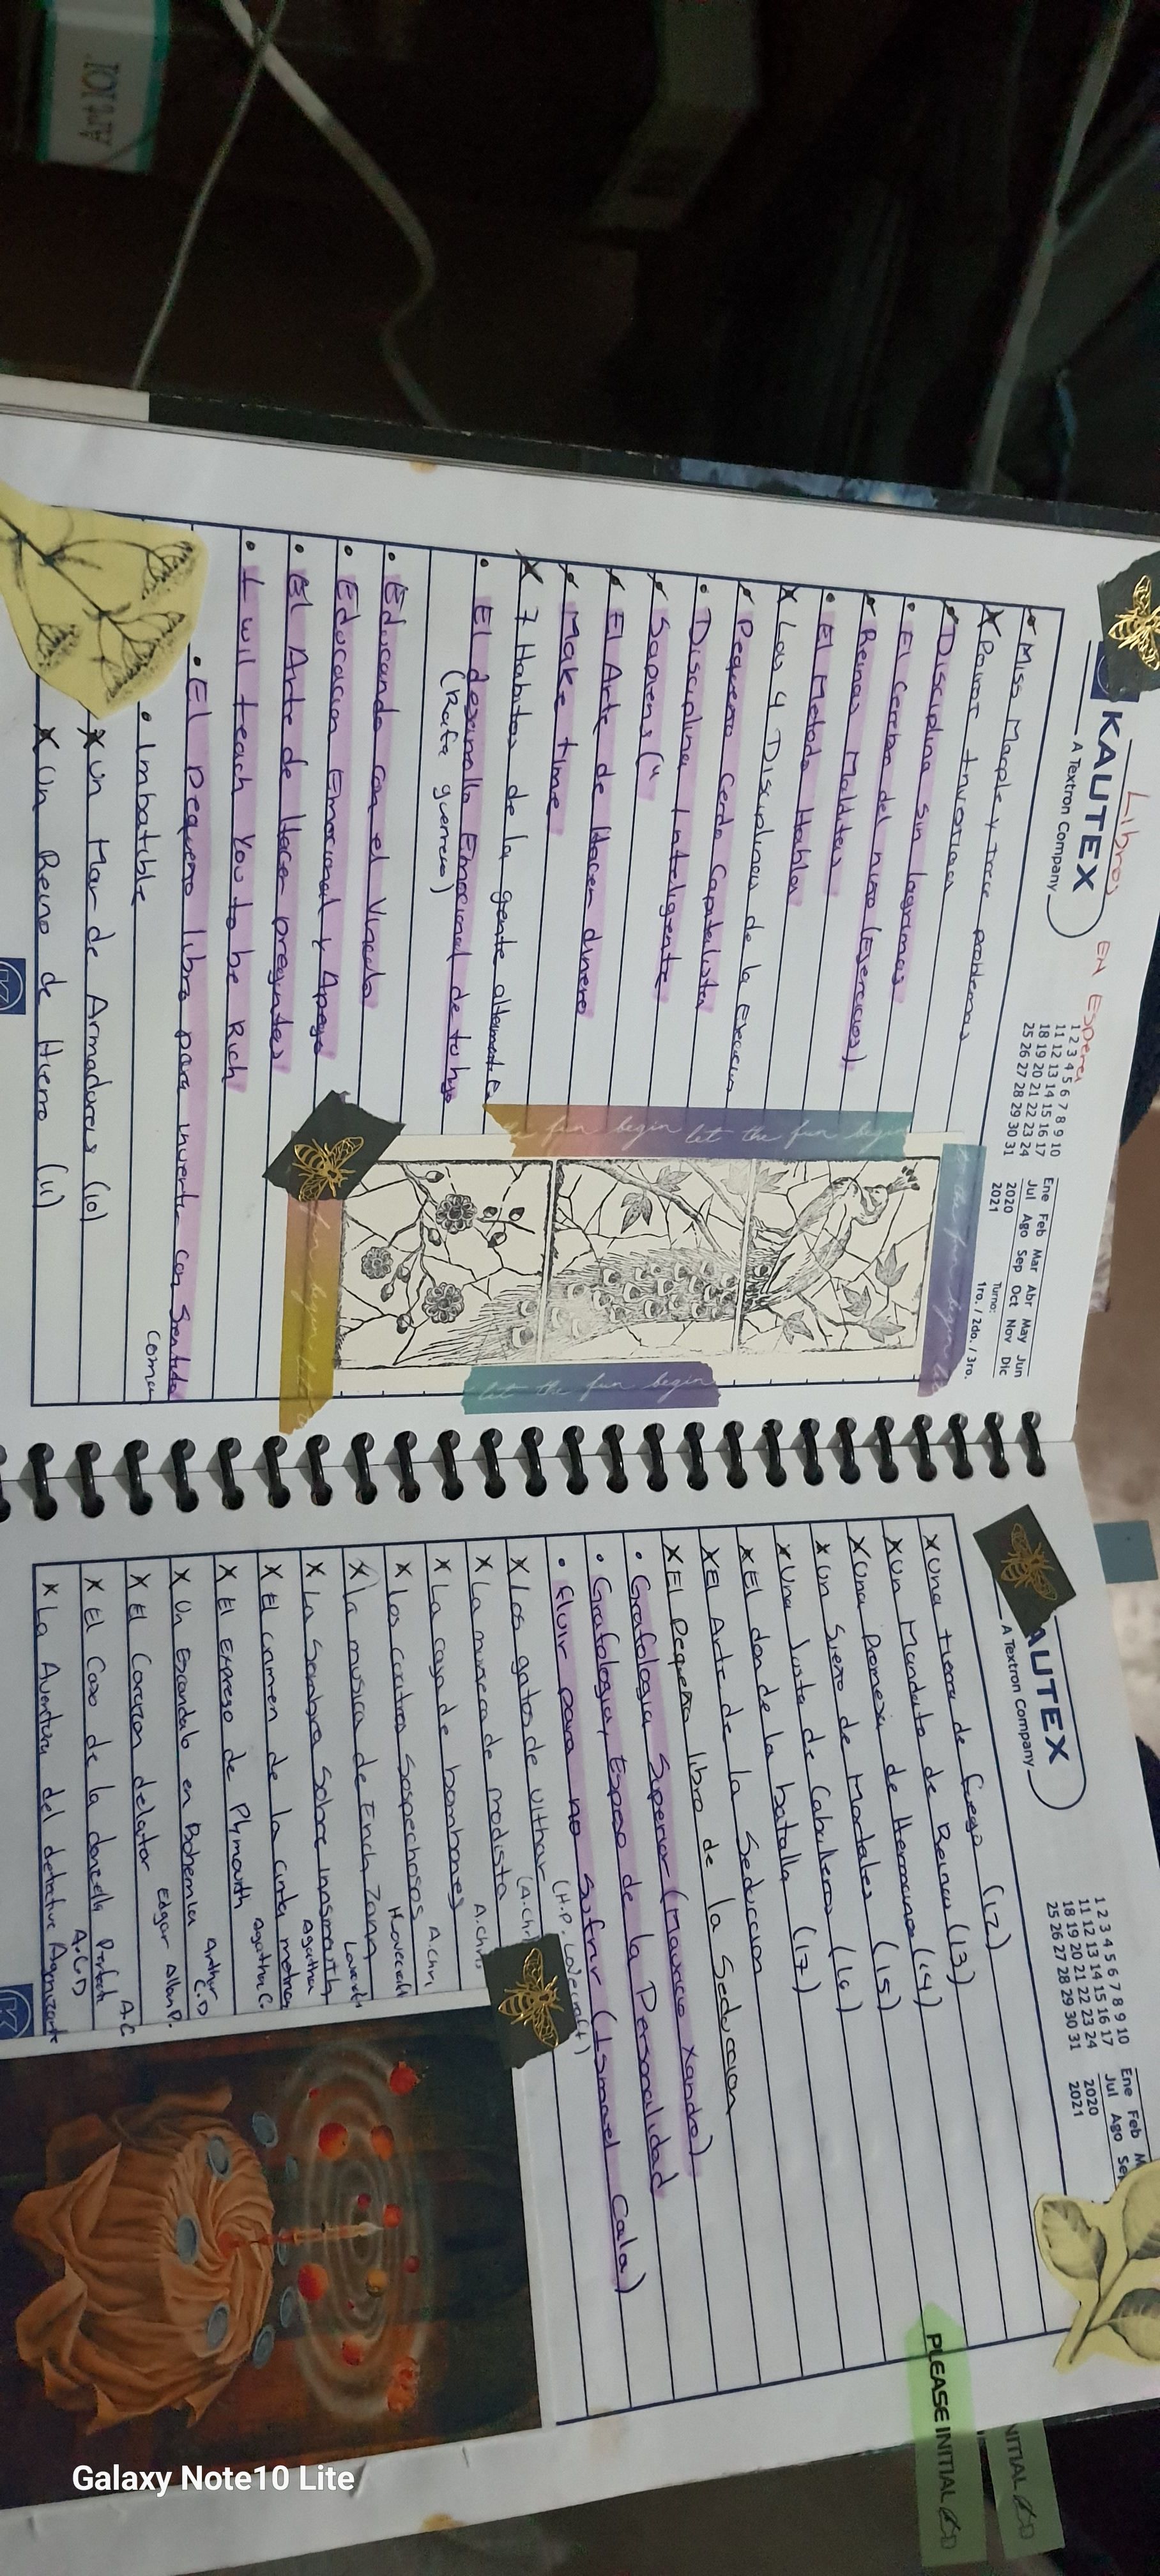 Art 101
Libros EN Espera
KAUTEX
A Textron Company
1 2 3 4 5 6 7 8 9 10
11 12 13 14 15 16 17
18 19 20 21 22 23 24
25 26 27 28 29 30 31
Ene Feb Mar Abr May Jun
Jul Ago Sep Oct Nov Dic
2020
2021
Turno:
1ro. / 2do. / 3ro.
• Miss Marple y trece problemas
X Point
• Disciplina sin lagrimas
• El cerebro del niño (Ejercicios)
• Reinas Malditas
• El Metodo Habla
X Las 4 Disciplinas de la Ejecucion
• Pequeño Cerdo Capitalista
• Disciplina Inteligente
• Sapiens ("
• El Arte de Hacer dinero
• Make time
X 7 Habitos de la gente altamente E.
• El desarrollo Emocional de tu hijo
(Rafa guerrero)
• Educando con el Vinculo
• Educacion Emocional y Apego
• El Arte de Hacer preguntas
• I will teach You to be Rich
• El pequeño libro para invertir con Sentido
comun
• Imbatible
X Un Mar de Armaduras (10)
X Un Reino de Hierro (11)
let the fun begin let the fun begin
let the fun begin
AUTEX
A Textron Company
1 2 3 4 5 6 7 8 9 10
11 12 13 14 15 16 17
18 19 20 21 22 23 24
25 26 27 28 29 30 31
Ene Feb M
Jul Ago Sep
2020
2021
X Una tierra de fuego (12)
X Un Mandato de Reinas (13)
X Una promesa de Hermanos (14)
X Un Sueño de Mortales (15)
X Una Justa de Caballeros (16)
X El don de la batalla (17)
X El Arte de la Seduccion
X El pequeño libro de la Seduccion
• Grafologia Superior (Mauricio Xandro)
• Grafologia, Espejo de la Personalidad
• Fluir para no Sufrir (Ismael Cala)
X Los gatos de ulthar (H.P. Lovecraft)
X La muñeca de modista (A.Chri
X La caja de bombones A.Chris
X Los cuatro Sospechosos A.Chri
X La musica de Erich Zann H lovecraft
X La Sombra Sobre innsmouth Lovecraft
X El crimen de la cinta metrica Agatha
X El Expreso de Plymouth Agatha C.
X Un Escandalo en Bohemia Arthur C.D
X El Corazon delator Edgar Allan P.
X El Caso de la doncella Perfecta A.C
X La Aventura del detective Agonizante A.C.D
PLEASE INITIAL
NITIAL
Galaxy Note10 Lite